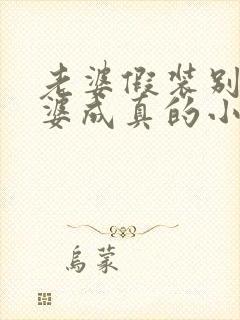 老婆假装别
婆成真的小
乌蒙